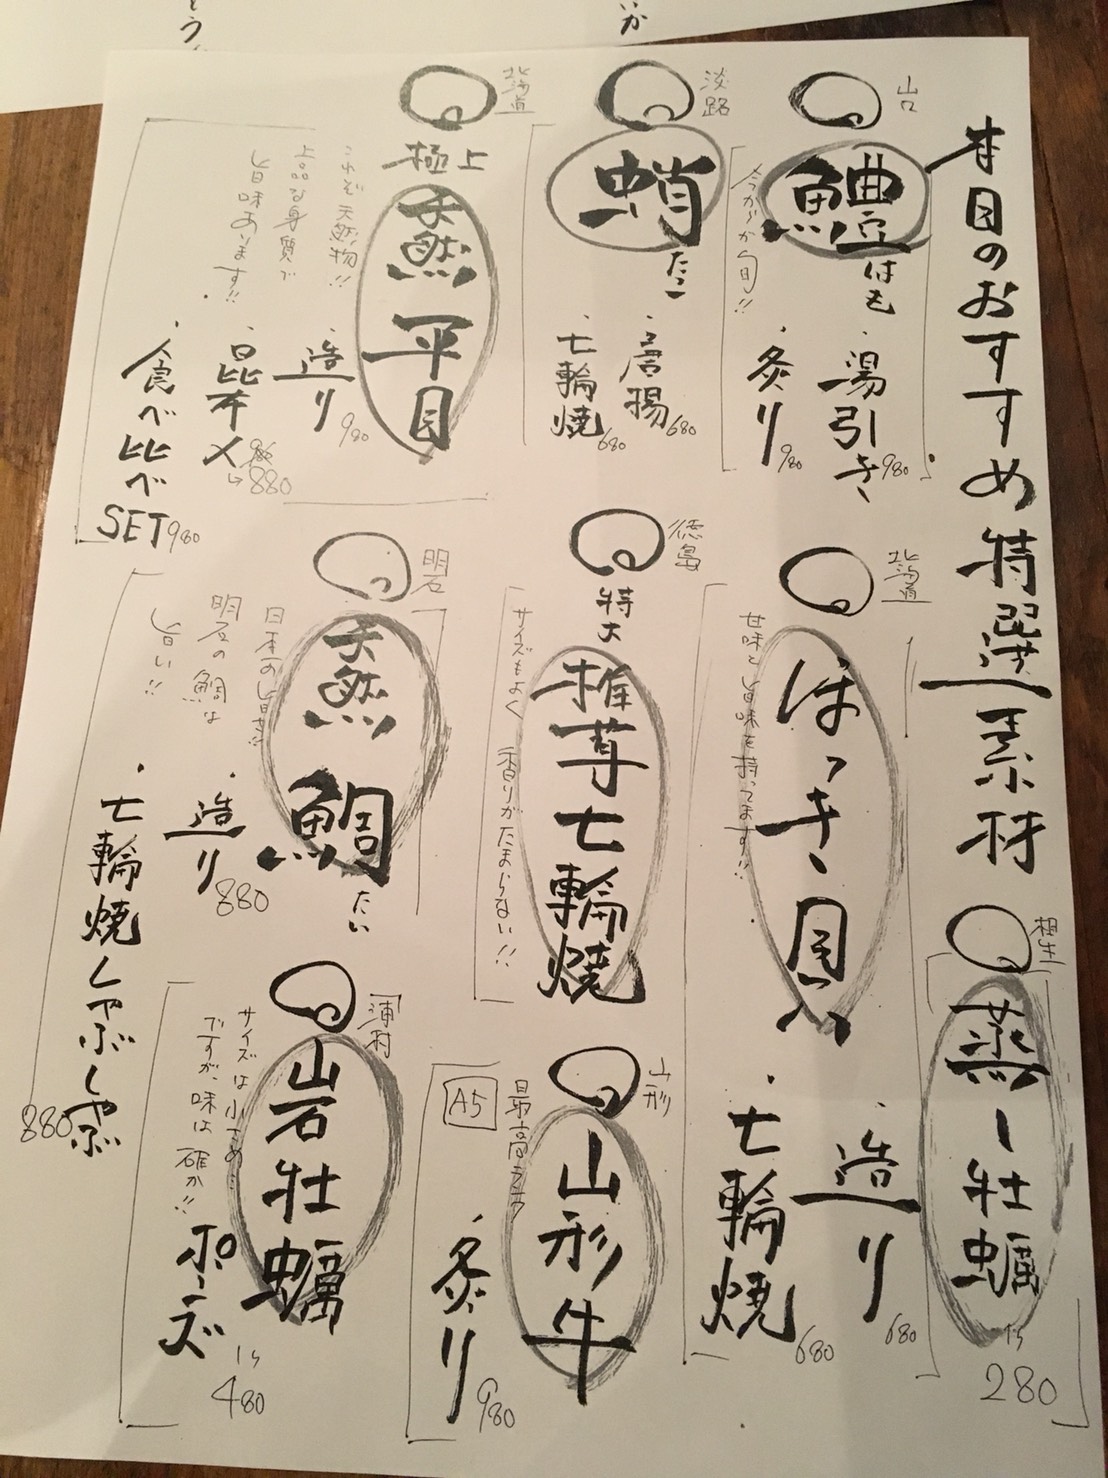 本日のおすすめ特選素材
山口
鱧はも
今からが旬!!
・湯引き 980
・炙り 980
淡路
蛸たこ
・唐揚 680
・七輪焼 680
北海道
極上
天然平目
これぞ天然物!!
上品な身質で
旨味あります!!
・造り 980
・昆布〆
→880
・食べ比べ
SET 980
相生
蒸し牡蠣
1ケ
280
北海道
ほっき貝
甘味と旨味を持ってます!!
・造り 680
・七輪焼 680
徳島
特大
椎茸七輪焼
サイズもよく 香りがたまらない!!
明石
天然鯛たい
日本一の旨さ!!
明石の鯛は
旨い!!
・造り 880
・七輪焼しゃぶしゃぶ
880
山形
山形牛
最高ランク
A5
・炙り 980
浦村
岩牡蠣
サイズは小さめ…
ですが、味は確か!!
ポンズ
1ケ
480